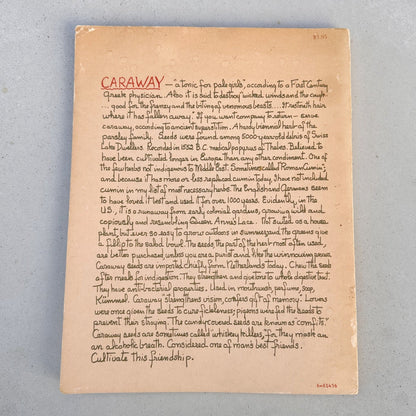 $3.95
CARAWAY — "a tonic for pale girls", according to a First Century
Greek physician. Also it is said to destroy wicked winds and the cough
... good for the frensey and the biting of venomous beasts.... It restoreth hair
where it has fallen away." If you want company to return - serve
caraway, according to ancient superstition. A hardy biennial herb of the
parsley family. Seeds were found among 5000-year-old debris of Swiss
Lake Dwellers. Recorded in 1552 B.C. medical papyrus of Thebes. Believed to
have been cultivated longer in Europe than any other condiment. One of
the few herbs not indigenous to Middle East. Sometimes called "Roman Cumin",
and because it has more or less replaced cumin today, I have not included
cumin in my list of most necessary herbs. The English and Germans seem
to have loved it best and used it for over 1000 years. Evidently, in the
U.S., it is a runaway from early colonial gardens, growing wild and
copiously and resembling Queen Anne's Lace. Not suited as a house
plant, but even so easy to grow outdoors in summer and the greens give
a fillip to the salad bowl. The seeds, the part of the herb most often used,
are better purchased unless you are a purist and like the winnowing process.
Caraway seeds are imported chiefly from Netherlands today. Chew the seeds
after meals for indigestion. They strengthen and quicken to whole digestive tract.
They have anti-bacterial properties. Used in mouthwash, perfume, soap,
Kümmel. Caraway strengthens vision, confers gift of memory. Lovers
were once given the seeds to cure fickleness; pigeons were fed the seeds to
prevent their straying. The candy covered seeds are known as "comfits."
Caraway seeds are sometimes called "whiskey killers," for they mask an
an alcoholic breath. Considered one of man's best friends.
Cultivate this friendship.